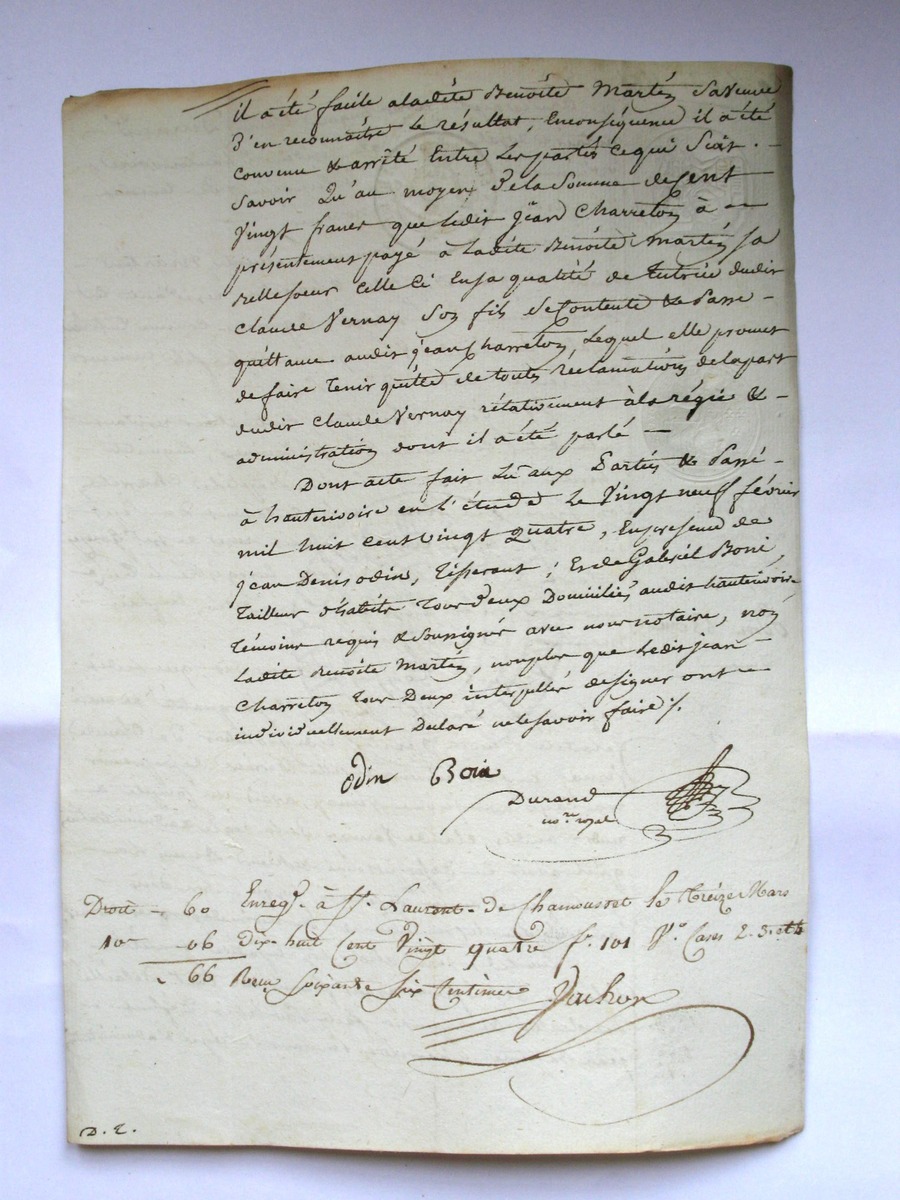 il a été facile a ladite Benoîte Martin sa veuve
d'en reconnaître le résultat, Enconséquence il a été
convenu & arrêté Entre les parties ce qui suit. -
Savoir Qu'au moyen de la Somme de Cent
Vingt francs que ledit jean Charreton à -
présentement payé à Ladite Benoîte Martin sa
belle soeur Celle Ci En sa qualité de tutrice dudit
Claude Vernay Son fils Se Contente & Passe -
quittance audit jean Charreton, Lequel elle promet
de faire tenir quitte de toutes réclamations de la part
dudit Claude Vernay rélativement à la régie & -
administration dont il a été parlé -
Dont acte fait Lû aux Parties & Passé -
à hauterivoire en l'étude Le Vingt neuf février
mil huit cent vingt quatre, En présence de
jean Denis odin, tisserant; Et de Gabriël Boin,
tailleur d'habits tous deux Domiciliés audit hauterivoire
témoins requis & Soussignés avec nous notaire, non
Ladite Benoîte Martin, non plus que Ledit jean -
Charreton tous Deux interpellés de signer ont -
individuellement Déclaré ne le savoir faire ./.
Odin Boin
Durand
no.re royal
Droit - 60 Enreg.é à St. Laurent-de Chamousset le treize Mars
10e 06 dix-huit Cent Vingt quatre f.o 101 V.o Cases 2. 3. et 4
66 Reçu soixante six Centimes
D. E.